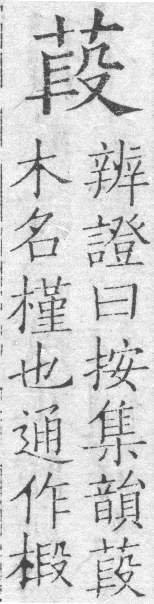 葮
辨證曰按集韻葮
木名槿也通作椴